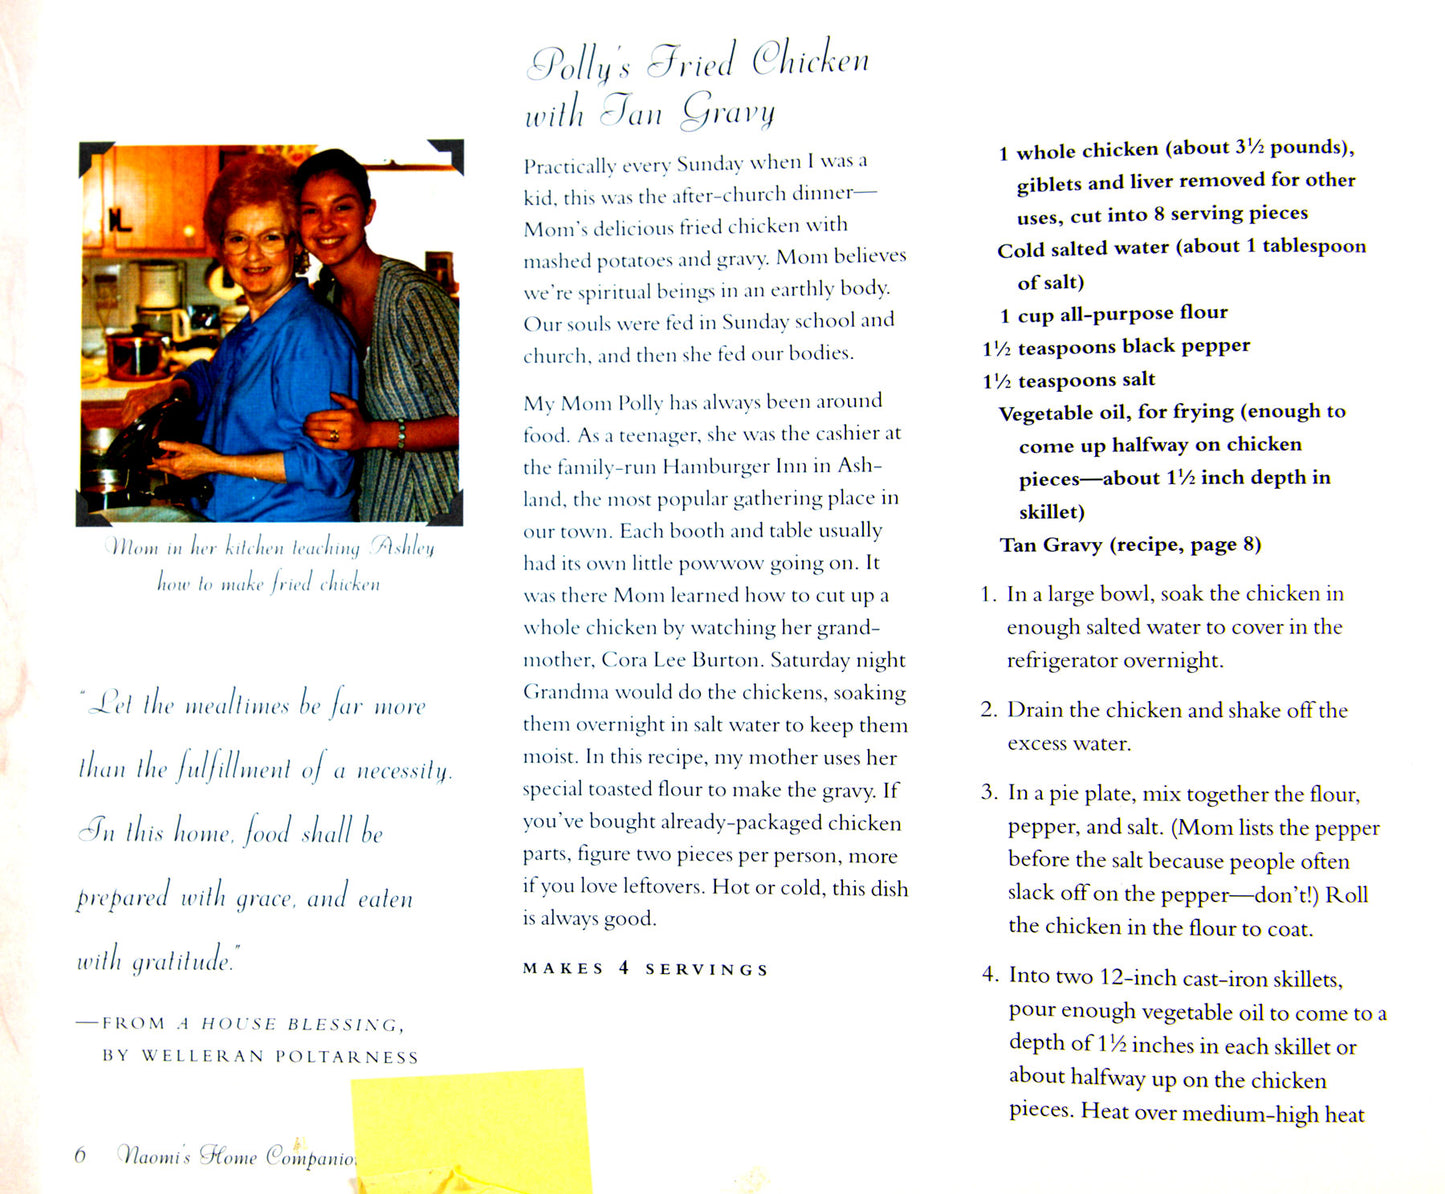 Mom in her kitchen teaching Ashley
how to make fried chicken
"Let the mealtimes be far more
than the fulfillment of a necessity.
In this home, food shall be
prepared with grace, and eaten
with gratitude."
—FROM A HOUSE BLESSING,
BY WELLERAN POLTARNESS
Polly's Fried Chicken
with Tan Gravy
Practically every Sunday when I was a
kid, this was the after-church dinner—
Mom's delicious fried chicken with
mashed potatoes and gravy. Mom believes
we're spiritual beings in an earthly body.
Our souls were fed in Sunday school and
church, and then she fed our bodies.
My Mom Polly has always been around
food. As a teenager, she was the cashier at
the family-run Hamburger Inn in Ash-
land, the most popular gathering place in
our town. Each booth and table usually
had its own little powwow going on. It
was there Mom learned how to cut up a
whole chicken by watching her grand-
mother, Cora Lee Burton. Saturday night
Grandma would do the chickens, soaking
them overnight in salt water to keep them
moist. In this recipe, my mother uses her
special toasted flour to make the gravy. If
you've bought already-packaged chicken
parts, figure two pieces per person, more
if you love leftovers. Hot or cold, this dish
is always good.
MAKES 4 SERVINGS
1 whole chicken (about 3½ pounds),
giblets and liver removed for other
uses, cut into 8 serving pieces
Cold salted water (about 1 tablespoon
of salt)
1 cup all-purpose flour
1½ teaspoons black pepper
1½ teaspoons salt
Vegetable oil, for frying (enough to
come up halfway on chicken
pieces—about 1½ inch depth in
skillet)
Tan Gravy (recipe, page 8)
1. In a large bowl, soak the chicken in
enough salted water to cover in the
refrigerator overnight.
2. Drain the chicken and shake off the
excess water.
3. In a pie plate, mix together the flour,
pepper, and salt. (Mom lists the pepper
before the salt because people often
slack off on the pepper—don't!) Roll
the chicken in the flour to coat.
4. Into two 12-inch cast-iron skillets,
pour enough vegetable oil to come to a
depth of 1½ inches in each skillet or
about halfway up on the chicken
pieces. Heat over medium-high heat
6 Naomi's Home Companion